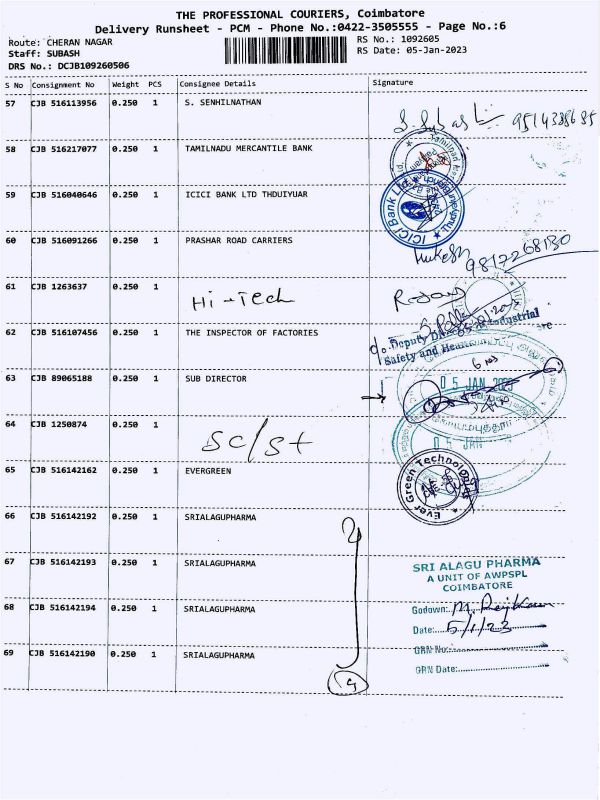 THE PROFESSIONAL COURIERS, Coimbatore
Delivery Runsheet - PCM - Phone No.:0422-3505555 - Page No.:6
Route: CHERAN NAGAR
RS No.: 1092605
Staff: SUBASH
RS Date: 05-Jan-2023
DRS No.: DCJB109260506
S No Consignment No Weight PCS Consignee Details Signature
57 CJB 516113956 0.250 1 S. SENHILNATHAN
58 CJB 516217077 0.250 1 TAMILNADU MERCANTILE BANK
59 CJB 516040646 0.250 1 ICICI BANK LTD THDUIYUAR
ICICI Bank Ltd
60 CJB 516091266 0.250 1 PRASHAR ROAD CARRIERS
Mukesh
9817268130
61 CJB 1263637 0.250 1 Hi-Tech
62 CJB 516107456 0.250 1 THE INSPECTOR OF FACTORIES
Safety and
63 CJB 89065188 0.250 1 SUB DIRECTOR
05 JAN 2023
64 CJB 1250874 0.250 1 SC/St
05 JAN
65 CJB 516142162 0.250 1 EVERGREEN
Ever Green Technologies
66 CJB 516142192 0.250 1 SRIALAGUPHARMA
67 CJB 516142193 0.250 1 SRIALAGUPHARMA
SRI ALAGU PHARMA
A UNIT OF AWPSPL
COIMBATORE
68 CJB 516142194 0.250 1 SRIALAGUPHARMA
Godown:
Date: 5/1/23
69 CJB 516142190 0.250 1 SRIALAGUPHARMA
GRN No:
GRN Date: